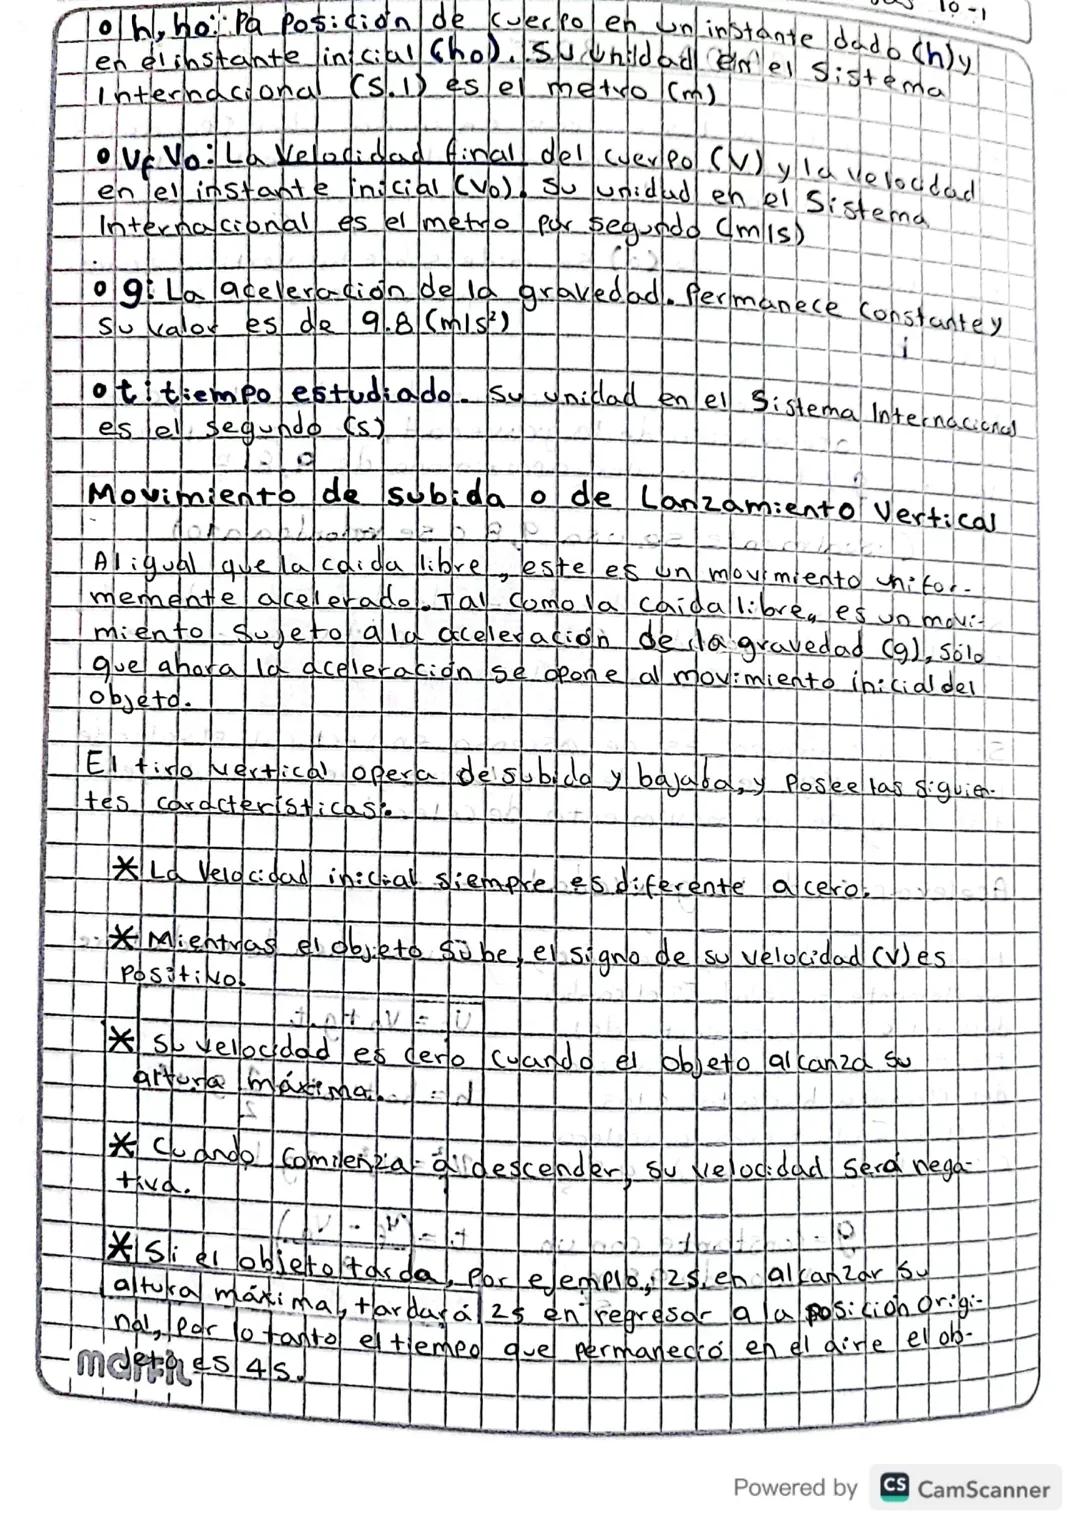 10-1
o h, ho: la Posición de cuerpo en un instante dado (h) y
en el instante inicial (ho). Su unidad en el Sistema
Internacional (S.I) es el metro (m)
o Vf Vo: La Velocidad final del cuerpo (V) y la velocidad
en el instante inicial (Vo). Su unidad en el Sistema
Internacional es el metro por segundo (m/s)
o g: La aceleración de la gravedad. Permanece constante y
su valor es de 9.8 (m/s²)
o t: tiempo estudiado. Su unidad en el Sistema Internacional
es el segundo (s)
Movimiento de subida o de Lanzamiento Vertical
Al igual que la caida libre, este es un movimiento unifor-
memente acelerado. Tal como la caida libre, es un movi-
miento sujeto a la aceleración de la gravedad (g), sólo
que ahora la aceleración se opone al movimiento inicial del
objeto.
El tiro vertical opera de subida y bajada, y Posee las siguien-
tes características:
* La Velocidad inicial siempre es diferente a cero.
* Mientras el objeto sube, el signo de su velocidad (V) es
Positivo.
* Su velocidad es cero cuando el objeto alcanza su
altura máxima.
* Cuando comienza a descender, su velocidad será nega-
tiva.
* Si el objeto tarda, por ejemplo, 2s en alcanzar su
altura máxima, tardará 2s en regresar a la posición origi-
nal, por lo tanto el tiempo que permaneció en el aire el ob-
jeto es 4s.
Powered by CS CamScanner